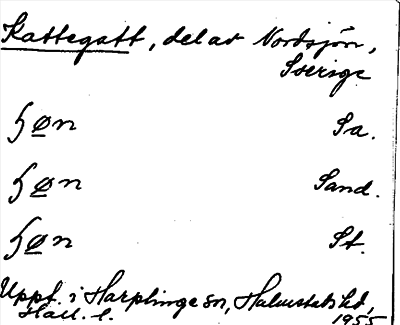 Kattegatt, del av Nordsjön,
Sverige
ꜧøn Sa.
ꜧøn Sand.
ꜧøn St.
Uppt. i Harplinge sn, Halmstads hd,
Hall. l. 1955